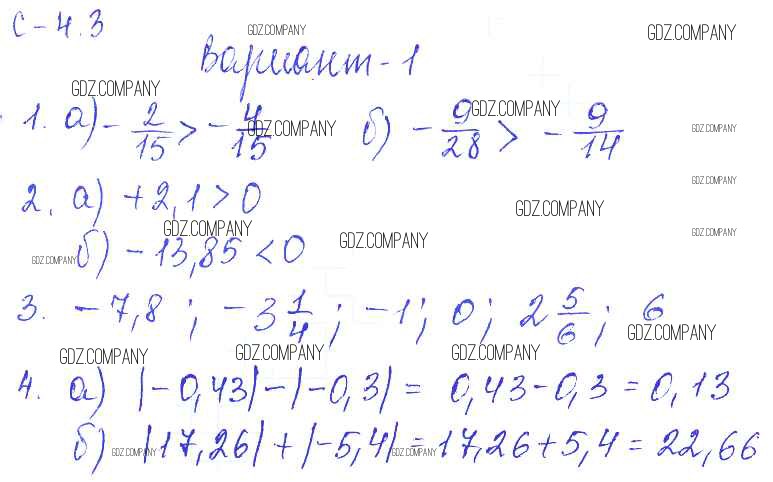 С-4.3
GDZ.COMPANY GDZ.COMPANY
Вариант-1
GDZ.COMPANY GDZ.COMPANY
1. а) -2/15 > -4/15 б) -9/28 > -9/14
GDZ.COMPANY GDZ.COMPANY
GDZ.COMPANY
2. а) +2,1 > 0
GDZ.COMPANY
GDZ.COMPANY GDZ.COMPANY GDZ.COMPANY
б) -13,85 < 0
GDZ.COMPANY
3. -7,8 ; -3 1/4 ; -1 ; 0 ; 2 5/6 ; 6
GDZ.COMPANY
GDZ.COMPANY GDZ.COMPANY GDZ.COMPANY
4. а) |-0,43|-|-0,3| = 0,43-0,3 = 0,13
б) |17,26|+|-5,4| = 17,26+5,4 = 22,66
GDZ.COMPANY GDZ.COMPANY GDZ.COMPANY